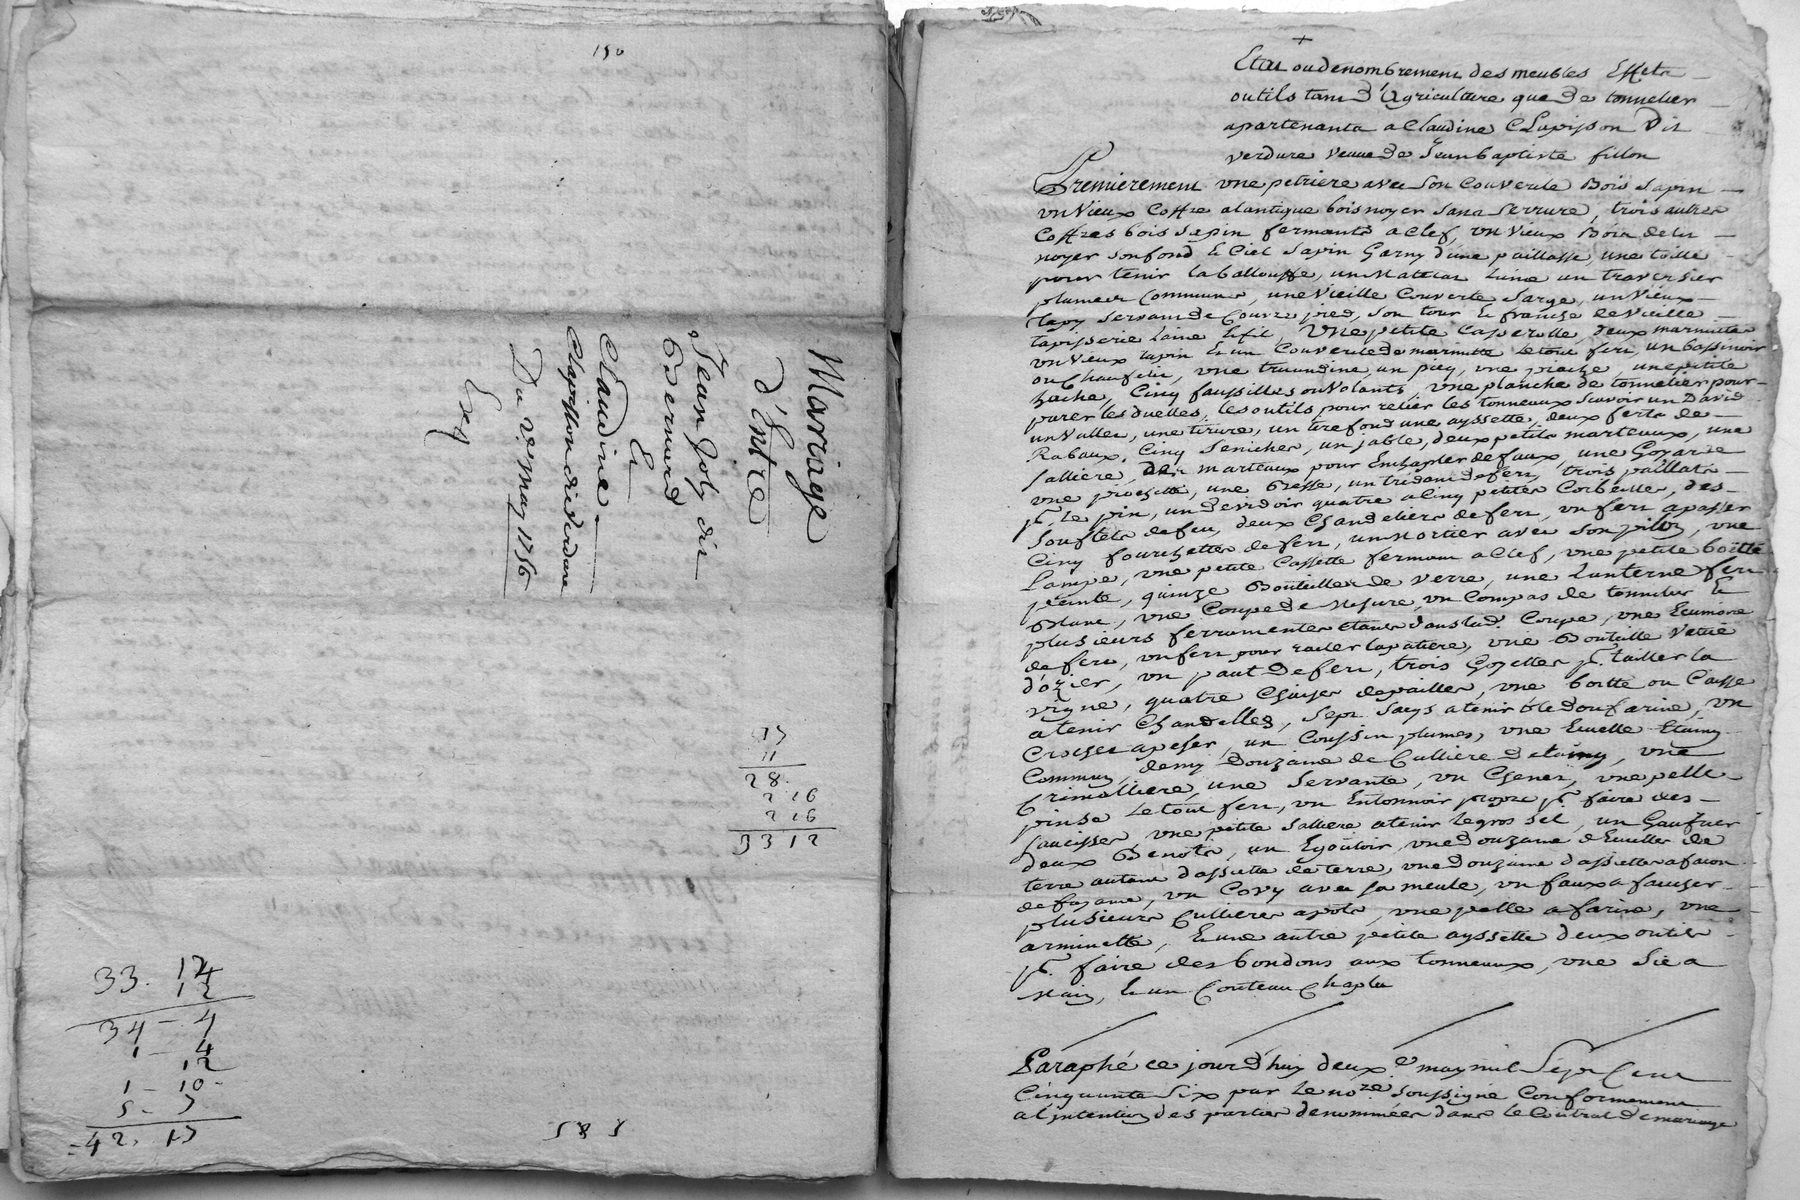 150
Mariage
d'Entre
Jean Joly dit
Bernard
Et
Claudine
Clapisson dit Verdure
Du 2e may 1756
Exp
17
11
28.
2 16
2 16
33 12
33. 12
12
34 - 4
1 - 4
12
1 - 10 -
5 - 3
42. 13
585
+
Etat ou denombrement des meubles Effets
outils tant d'Agriculture que de tonnelier
apartenants a Claudine Clapisson Dit
verdure veuve de Jean baptiste fillon
Premierement une petriere avec son Couvercle Bois sapin
un Vieux Coffre a lantique bois noyer sans serrure, trois autres
Coffres bois sapin fermants a Clef, un Vieux Bois de lit
noyer son fond & Ciel sapin Garny d'une paillasse, une toille
pour tenir la balouffe, un Matelas Laine un traversier
plumes Communes, une Vieille Couverte Sarge, un Vieux
tapy servant de Couvre pied, son tour & franche de Vieille
tapisserie Laine & fil, Une petite Casserolle, deux marmittes
un Vieux tapin & un Couvercle de marmitte le tout fer, un bassinoir
ou Chauflit, une truandine, un picq, une pioche, une petite
hache, Cinq faussilles ou Volants, une planche de tonnelier pour
parer les duelles, les outils pour relier les tonneaux scavoir un David
un Vallet, une tirure, un tirefond une ayssette, deux ferts de
Rabaux, Cinq Seniches, un jable, deux petits marteaux, une
salliere, Deux marteaux pour Enchapler de faux, une Goyarde
une piochette, une Besse, un tridant de fer, trois paillats
pr. le pin, un devidoir quatre a Cinq petites Corbeilles, des
souflets de feu, deux Chandeliers de fer, un fer a passer
Cinq fourchettes de fer, un Mortier avec son pillon, une
Lampe, une petite Cassette fermant a Clef, une petite boitte
peinte, quinze Bouteilles de verre, une Lanterne fer
Blanc, une Coupe de Mesure, un Compas de tonnelier &
plusieurs ferrements Etants dans lad. Coupe, une Ecumoire
de fer, un fer pour racler la patiere, une Bouteille Vetue
d'ozier, un paut De fer, trois Goyettes pr. tailler la
vigne, quatre Chaises de paille, une boitte ou Caisse
a tenir Chandelles, sept sacqs a tenir bled ou farine, un
Crochet a peser, un Coussin plumes, une Ecuelle Etaing
Commun, demy Douzaine de Cuilliere D'etaing, une
Crimalliere, une Servante, un Chenet, une pelle
pinse le tout fer, un Entonnoir propre pr. faire des
saucisses, une petite salliere a tenir le gros sel, un Gaufrier
deux Benots, un Egoutoir, une douzaine d'Ecuelles de
terre autant d'assiette de terre, une Douzaine d'assiettes a facon
de fayance, un Covy avec sa meule, un faux a faucher
plusieurs Cuillieres a pots, une pelle a farine, une
arminette, & une autre petite ayssette deux outils
pr. faire des bondons aux tonneaux, une Sie a
Main, & un Couteau Chaplu
Paraphé ce jourd'huy deuxe may mil Sept Cent
Cinquante Six par le nore soussigné Conformement
a l'intention des parties denommées dans le Contrat de mariage